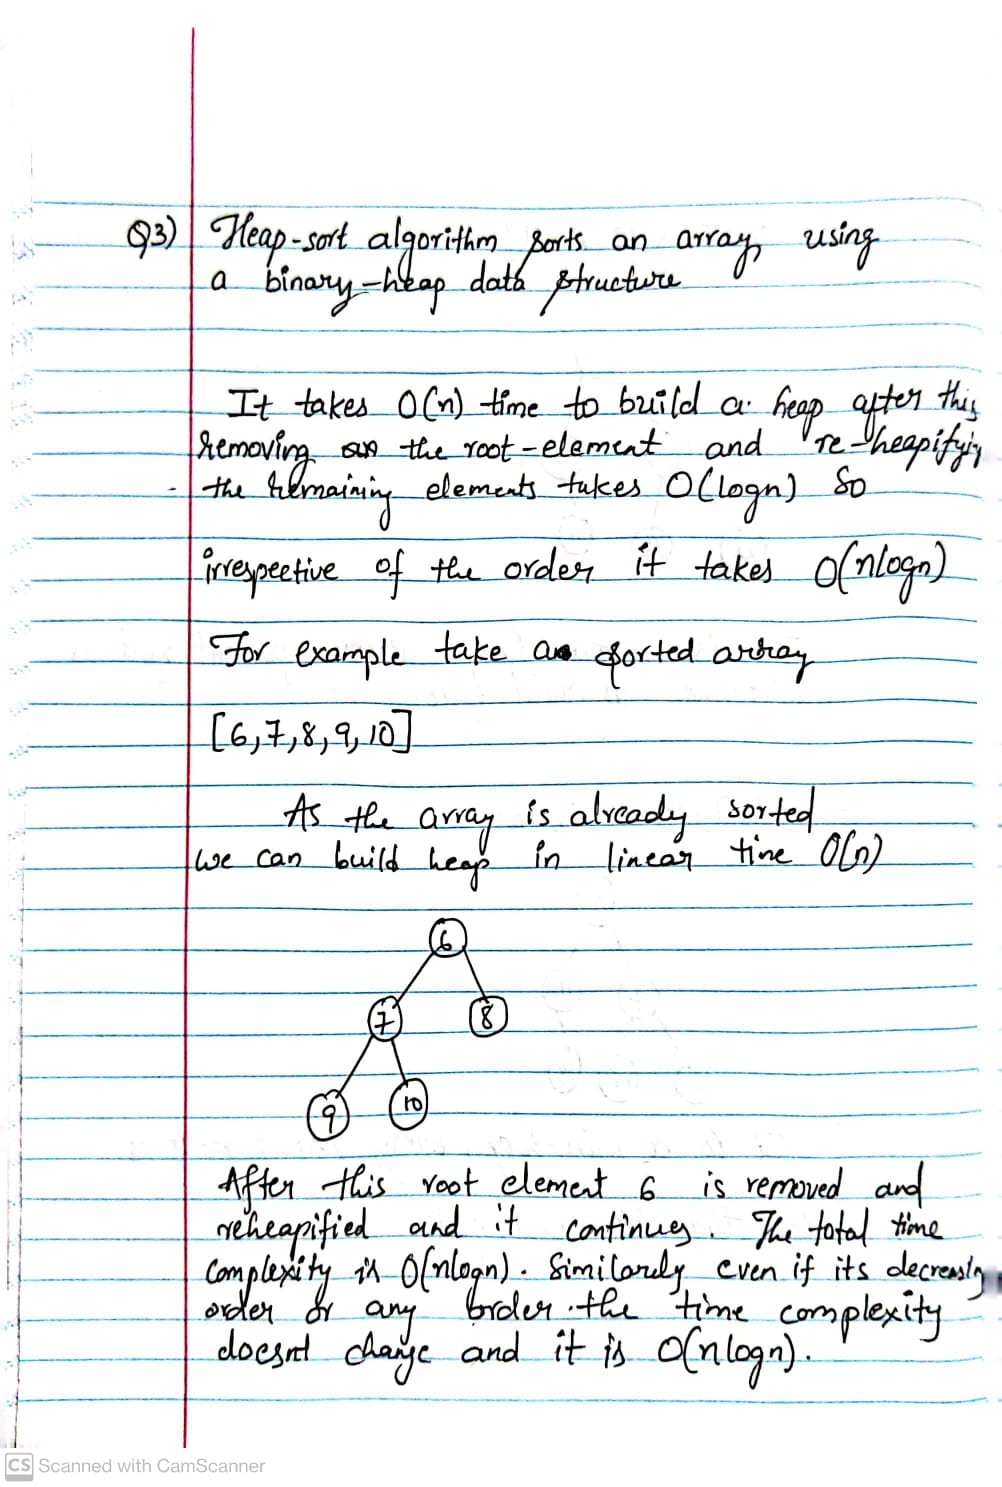 Q3) Heap-sort algorithm sorts an array using
a binary-heap data structure
It takes O(n) time to build a heap after this
removing the root-element and re-heapifying
the remaining elements takes O(logn) so
irrespective of the order it takes O(nlogn)
For example take a sorted array
[6,7,8,9,10]
As the array is already sorted
we can build heap in linear time O(n)
6
7 8
9 10
After this root element 6 is removed and
reheapified and it continues. The total time
complexity is O(nlogn). Similarly even if its decreasing
order or any order the time complexity
doesnt change and it is O(nlogn).
CS Scanned with CamScanner